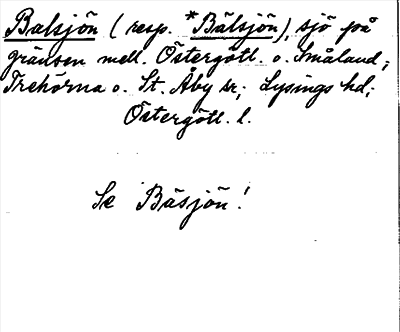 Balsjön (resp. *Bälsjön), sjö på
gränsen mell. Östergötl. o. Småland;
Trehörna o. St. Åby sr; Lysings hd;
Östergötl. l.
Se Bäsjön!